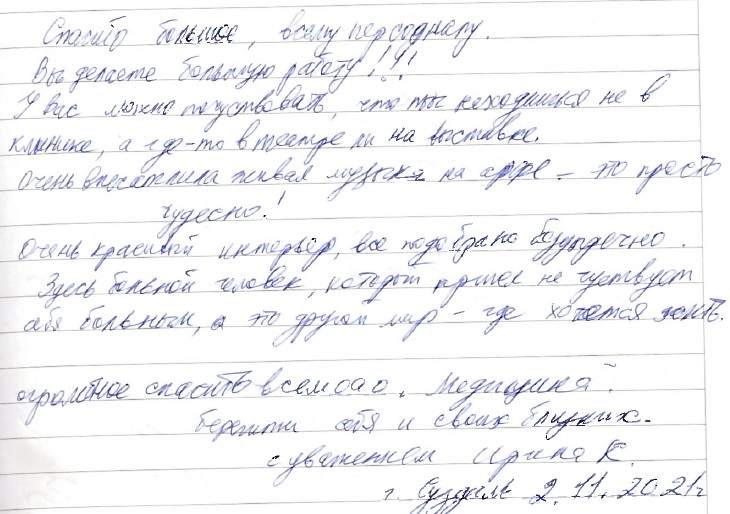 Спасибо большое, всему персоналу.
Вы делаете большую работу!!!
У вас можно почувствовать, что ты находишься не в
клинике, а где-то в театре ли на выставке.
Очень впечатлила живая музыка на арфе – это просто
чудесно!
Очень красивый интерьер, все подобрано безупречно.
Здесь больной человек, который пришел не чувствует
себя больным, а это другой мир – где хочется жить.
огромное спасибо всем оао. "Медицина".
Берегити себя и своих близких.
с уважением Ирина К.
г. Суздаль 2.11.2021г